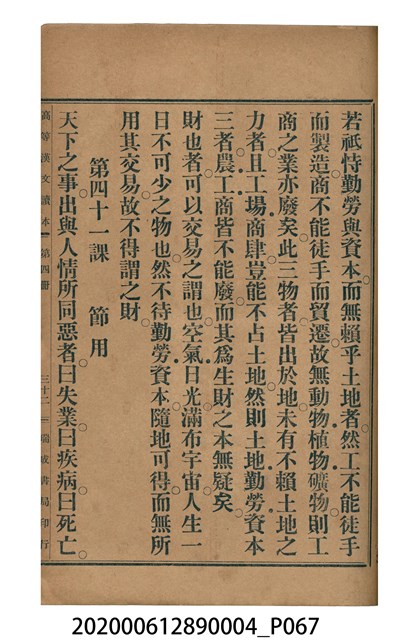 若祇恃勤勞與資本而無賴乎土地者然工不能徒手
而製造商不能徒手而貿遷故無動物植物礦物則工
商之業亦廢矣此三物者皆出於地未有不賴土地之
力者且工場商肆豈能不占土地然則土地勤勞資本
三者農工商皆不能廢而其爲生財之本無疑矣
財也者可以交易之謂也空氣日光滿布宇宙人生一
日不可少之物也然不待勤勞資本隨地可得而無所
用其交易故不得謂之財
第四十一課 節用
天下之事出與人情所同惡者曰失業曰疾病曰死亡
高等漢文讀本 第四冊 三十二 瑞成書局印行
202000612890004_P067